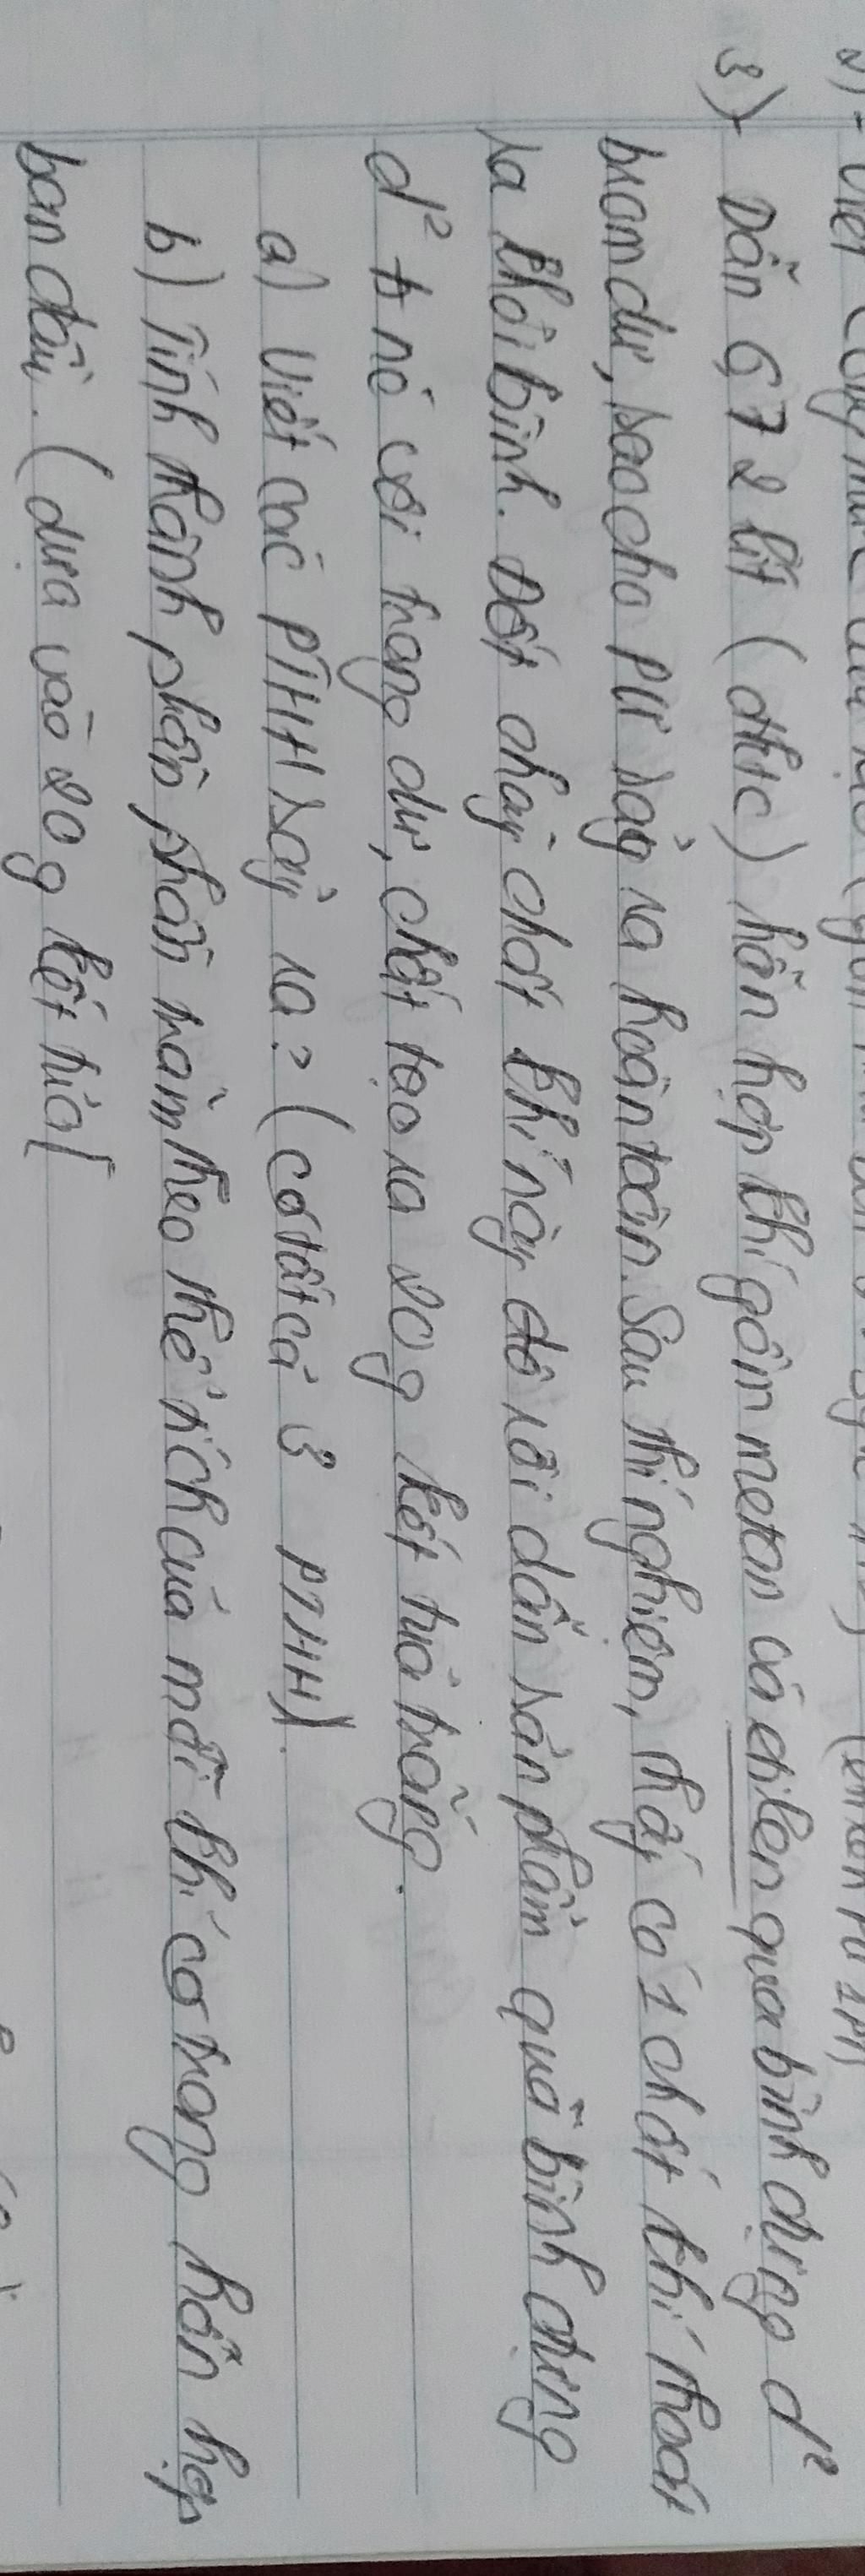 3) Dẫn 6,72 lít (đktc) hỗn hợp khí gồm metan và etilen qua bình đựng d²
brom dư, sao cho pư xảy ra hoàn toàn. Sau thí nghiệm, thấy có 1 chất khí thoát
ra khỏi bình. Đốt cháy chất khí này đó rồi dẫn sản phẩm qua bình đựng
d² nước vôi trong dư, chất tạo ra 20g kết tủa trắng.
a) Viết các PTHH xảy ra? (có tất cả 3 PTHH).
b) Tính thành phần phần trăm theo thể tích của mỗi khí có trong hỗn hợp
ban đầu. (dựa vào 20g kết tủa)